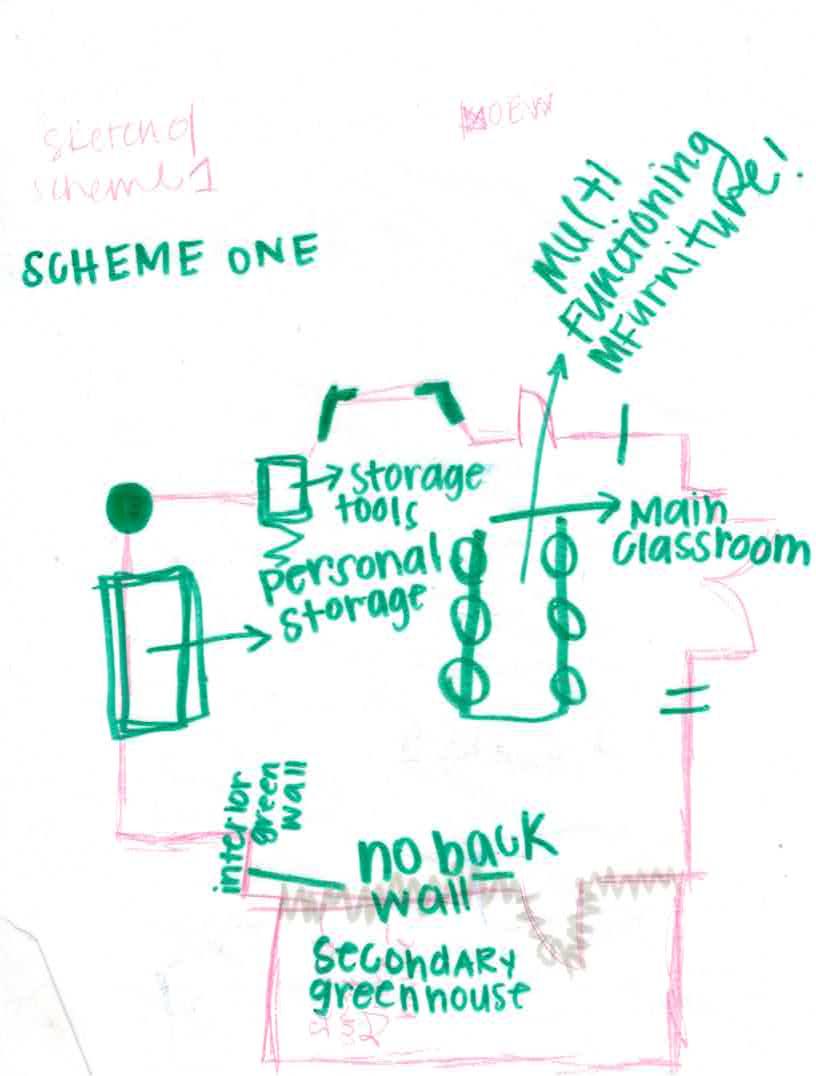 Sketch of
scheme 1
SCHEME ONE
Multi
Functioning
MFurniture!
storage
tools
Main
Classroom
personal
storage
interior
green
wall
no back
wall
Secondary
greenhouse